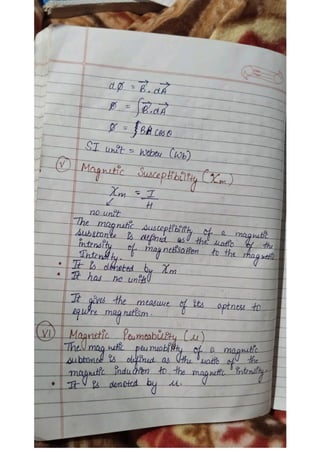 dØ = B⃗.dA⃗
Ø = ∫B⃗.dA⃗
Ø = ∫BA cosθ
SI unit = Weber (Wb)
(V) Magnetic Susceptibility (χm)
χm = I/H
no unit
The magnetic susceptibility of a magnetic
substance is defined as the ratio of the
intensity of magnetisation to the magnetic
Intensity.
• It is denoted by χm
• It has no units
It gives the measure of its aptness to
aquire magnetism.
(VI) Magnetic Permeability (μ)
The magnetic permeability of a magnetic
subtance is defined as the ratio of the
magnetic induction to the magnetic intensity.
• It is denoted by μ.